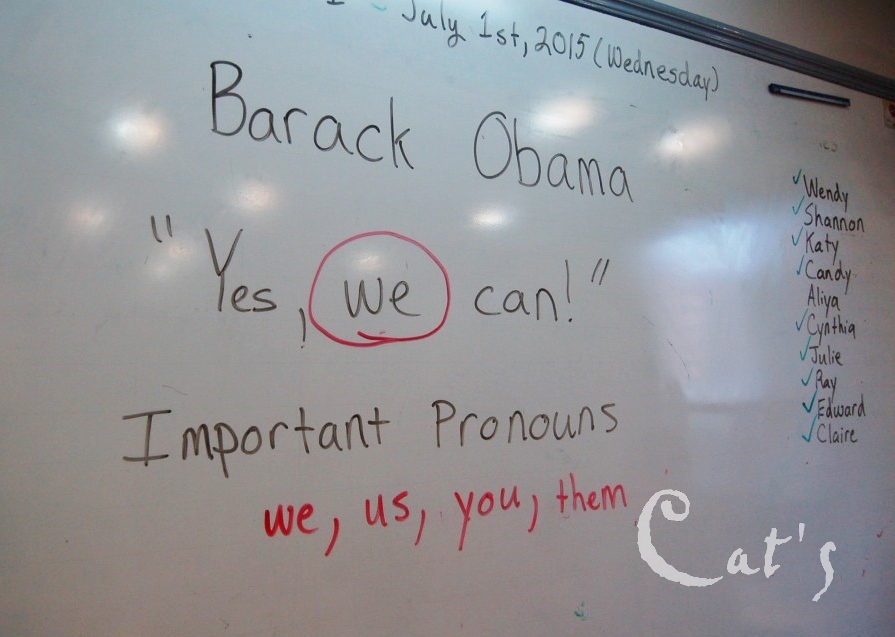 July 1st, 2015 (Wednesday)
Barack Obama
"Yes, we can!"
Important Pronouns
we, us, you, them
✓Wendy
✓Shannon
✓Katy
✓Candy
Aliya
✓Cynthia
✓Julie
✓Ray
✓Edward
✓Claire
Cat's